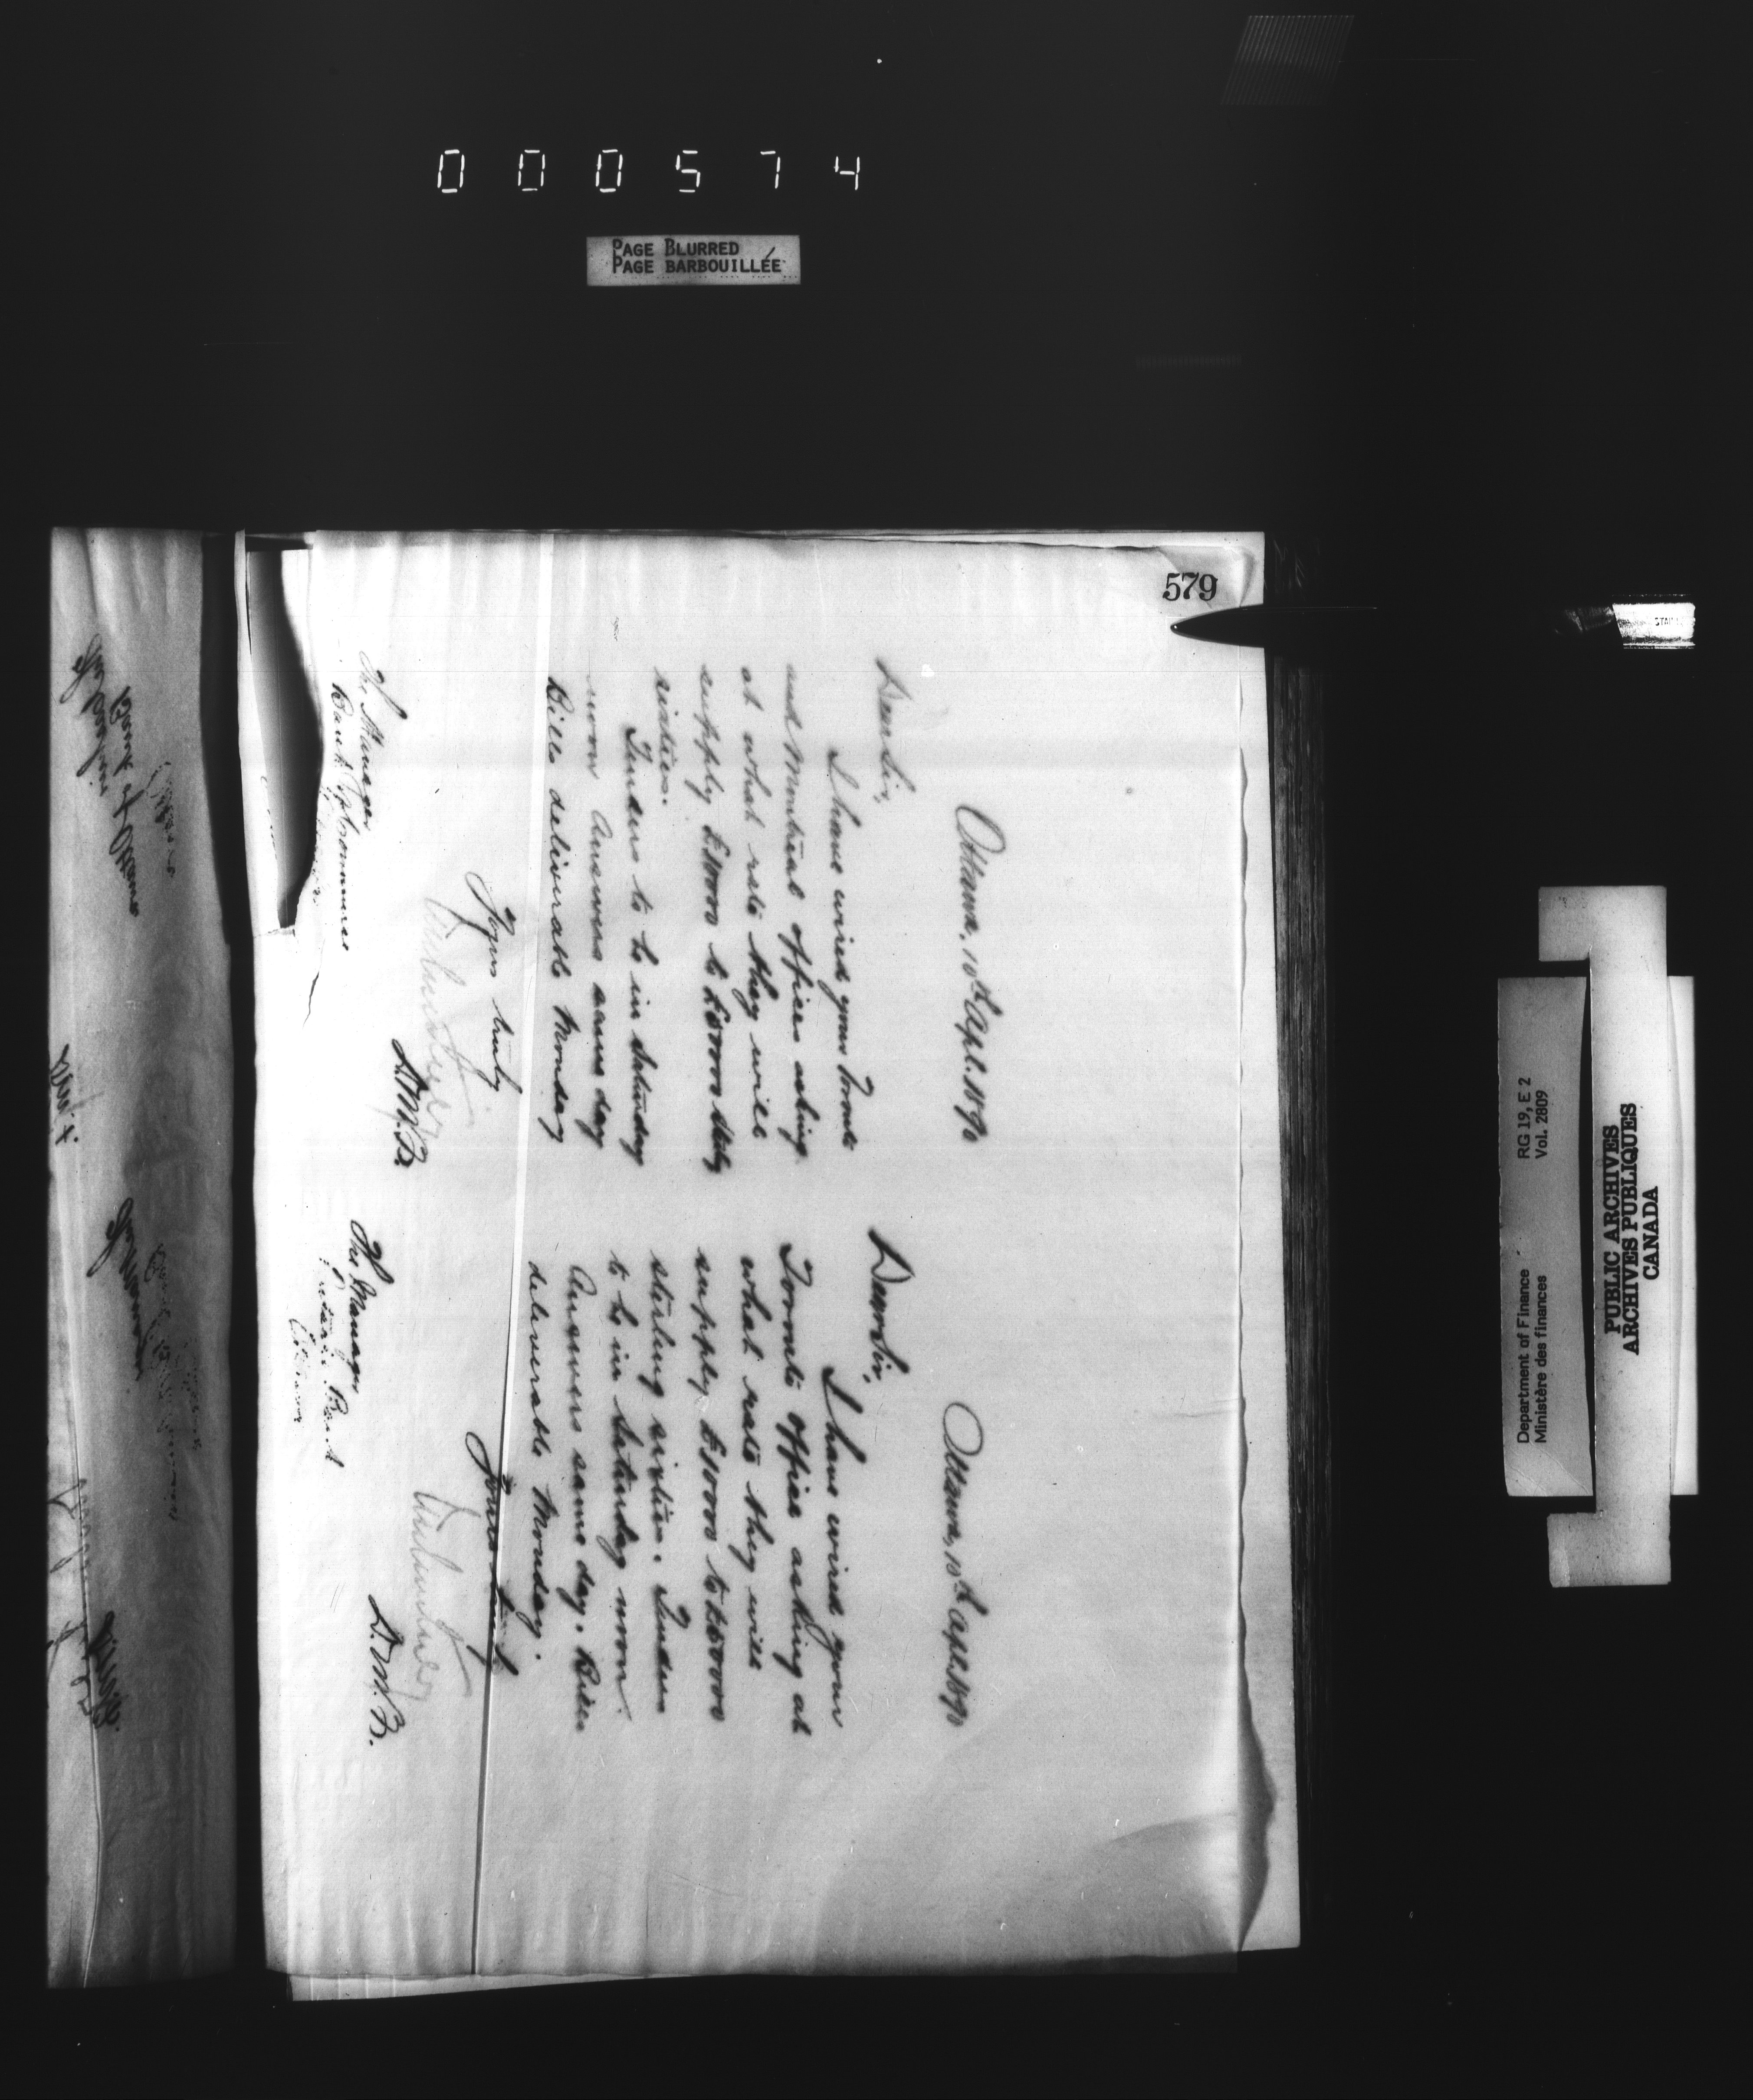 000574
PAGE BLURRED
PAGE BARBOUILLÉE
579
Ottawa, 10th Apl. 1890
Dear Sir,
I have wired your Toronto
and Montreal offices asking
at what rate they will
supply £10000 to £50000 Stg
sixties.
Tenders to be in Saturday
noon Answers same day
Bills deliverable Monday
Yours truly
D.M.F.
The Manager
Bank of Commerce
Ottawa, 10th Apl. 1890
Dear Sir,
I have wired your
Toronto office asking at
what rate they will
supply £10000 to £50000
sterling sixties. Tenders
to be in Saturday noon.
Answers same day. Bills
deliverable Monday.
Yours truly
D.M.F.
The Manager
Ontario Bank
Ottawa
Department of Finance
Ministère des finances
RG 19, E 2
Vol. 2809
PUBLIC ARCHIVES
ARCHIVES PUBLIQUES
CANADA